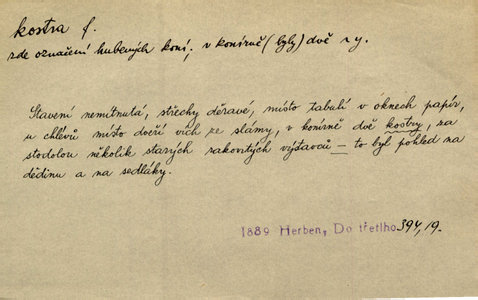 kostra f.
zde označení hubených koní; v konírně (byly) dvě ry.
Stavení nemítnutá, střechy děravé, místo tabulí v oknech papír,
u chlévů místo dveří vích ze slámy, v konírně dvě kostry, za
stodolou několik starých rakovitých výstavců — to byl pohled na
dědinu a na sedláky.
1889 Herben, Do třetího 394, 19.